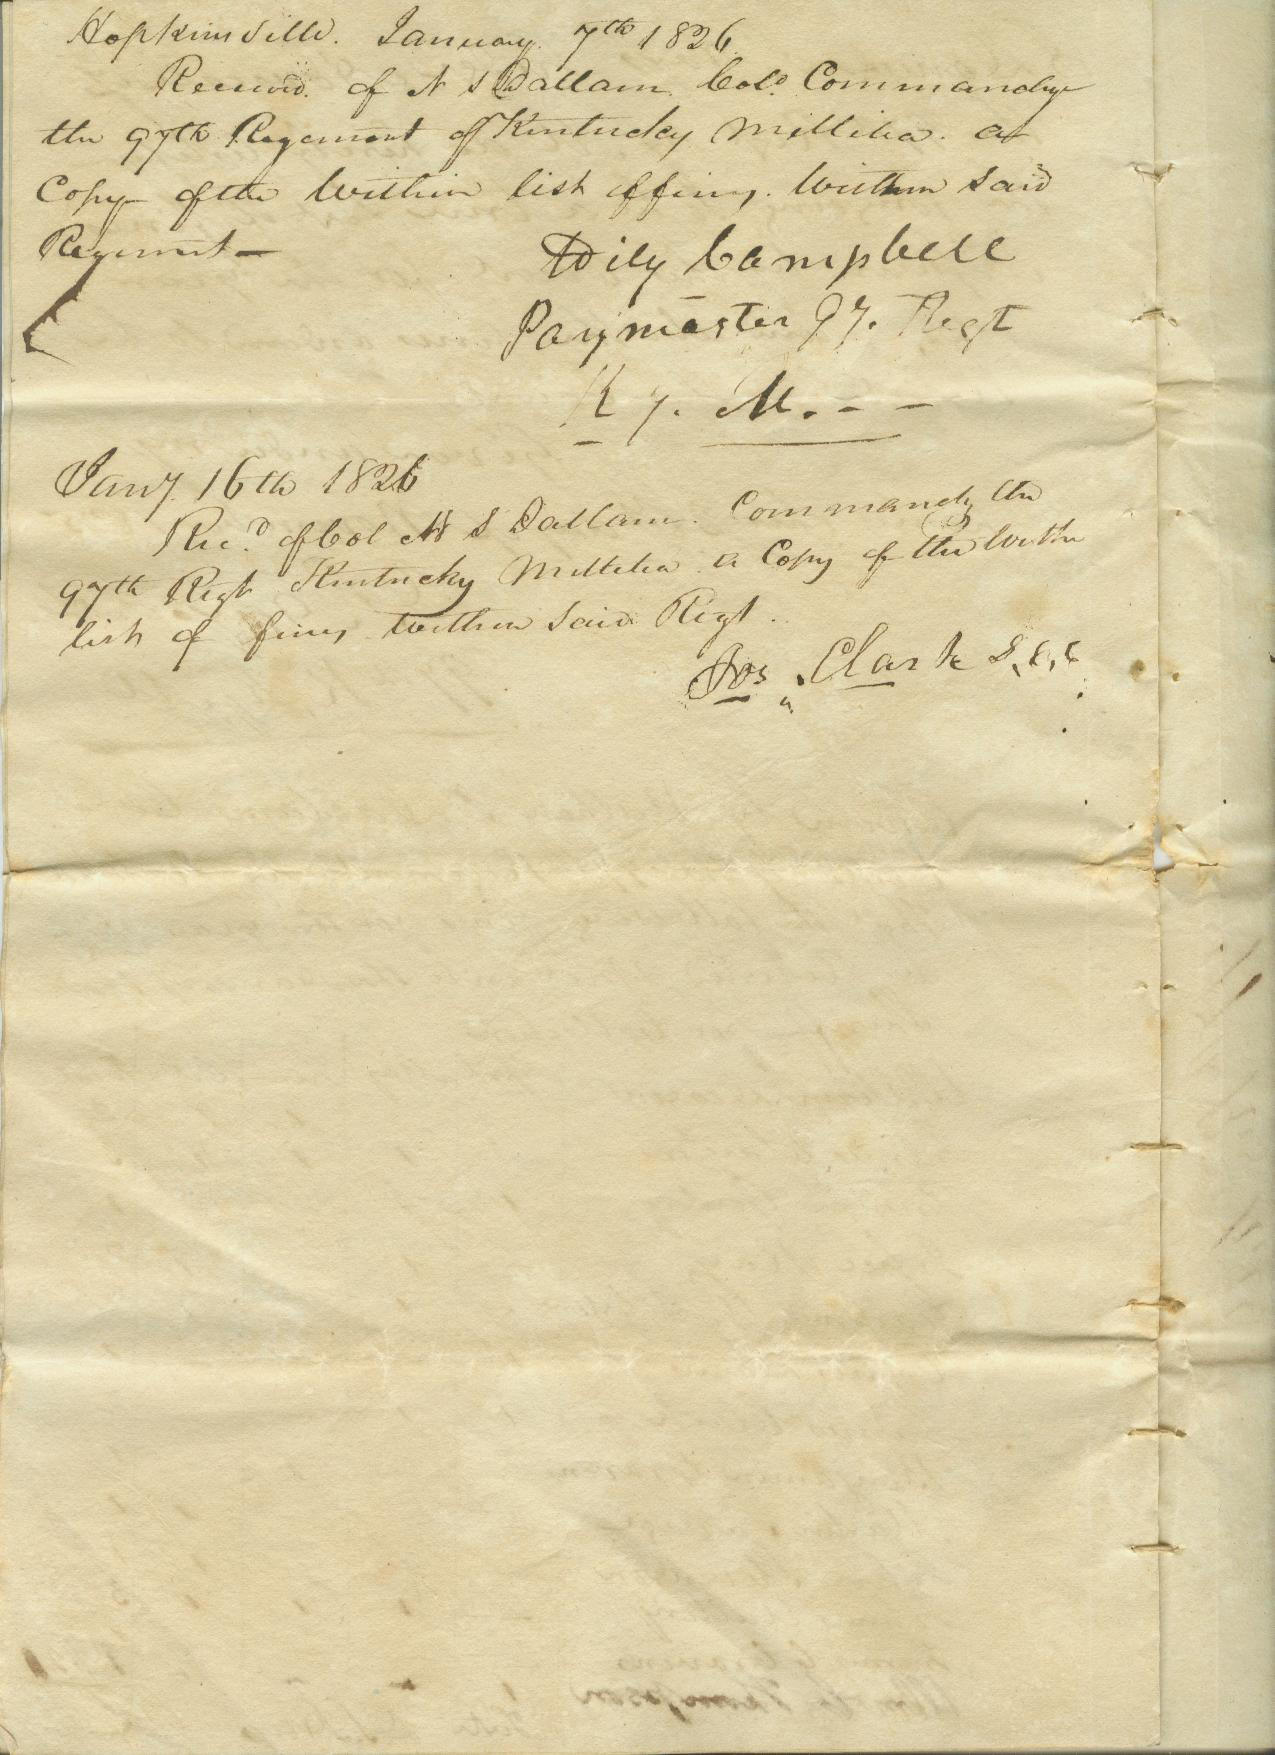 Hopkinsville. January. 7th 1826
Received. of N S Dallam. Colo. Commandg
the 97th Regement of Kentucky Millitia. a
Copy of the Within list of fines. Within Said
Regiment —
Wily Campbell
Paymaster 97. Regt
Ky. M. - -
Jany. 16th 1826
Recd. of Col N S Dallam. Commandg the
97th Regt Kentucky Millitia a Copy of the Within
list of fines Within Said Regt.
Jos Clark S.C.C